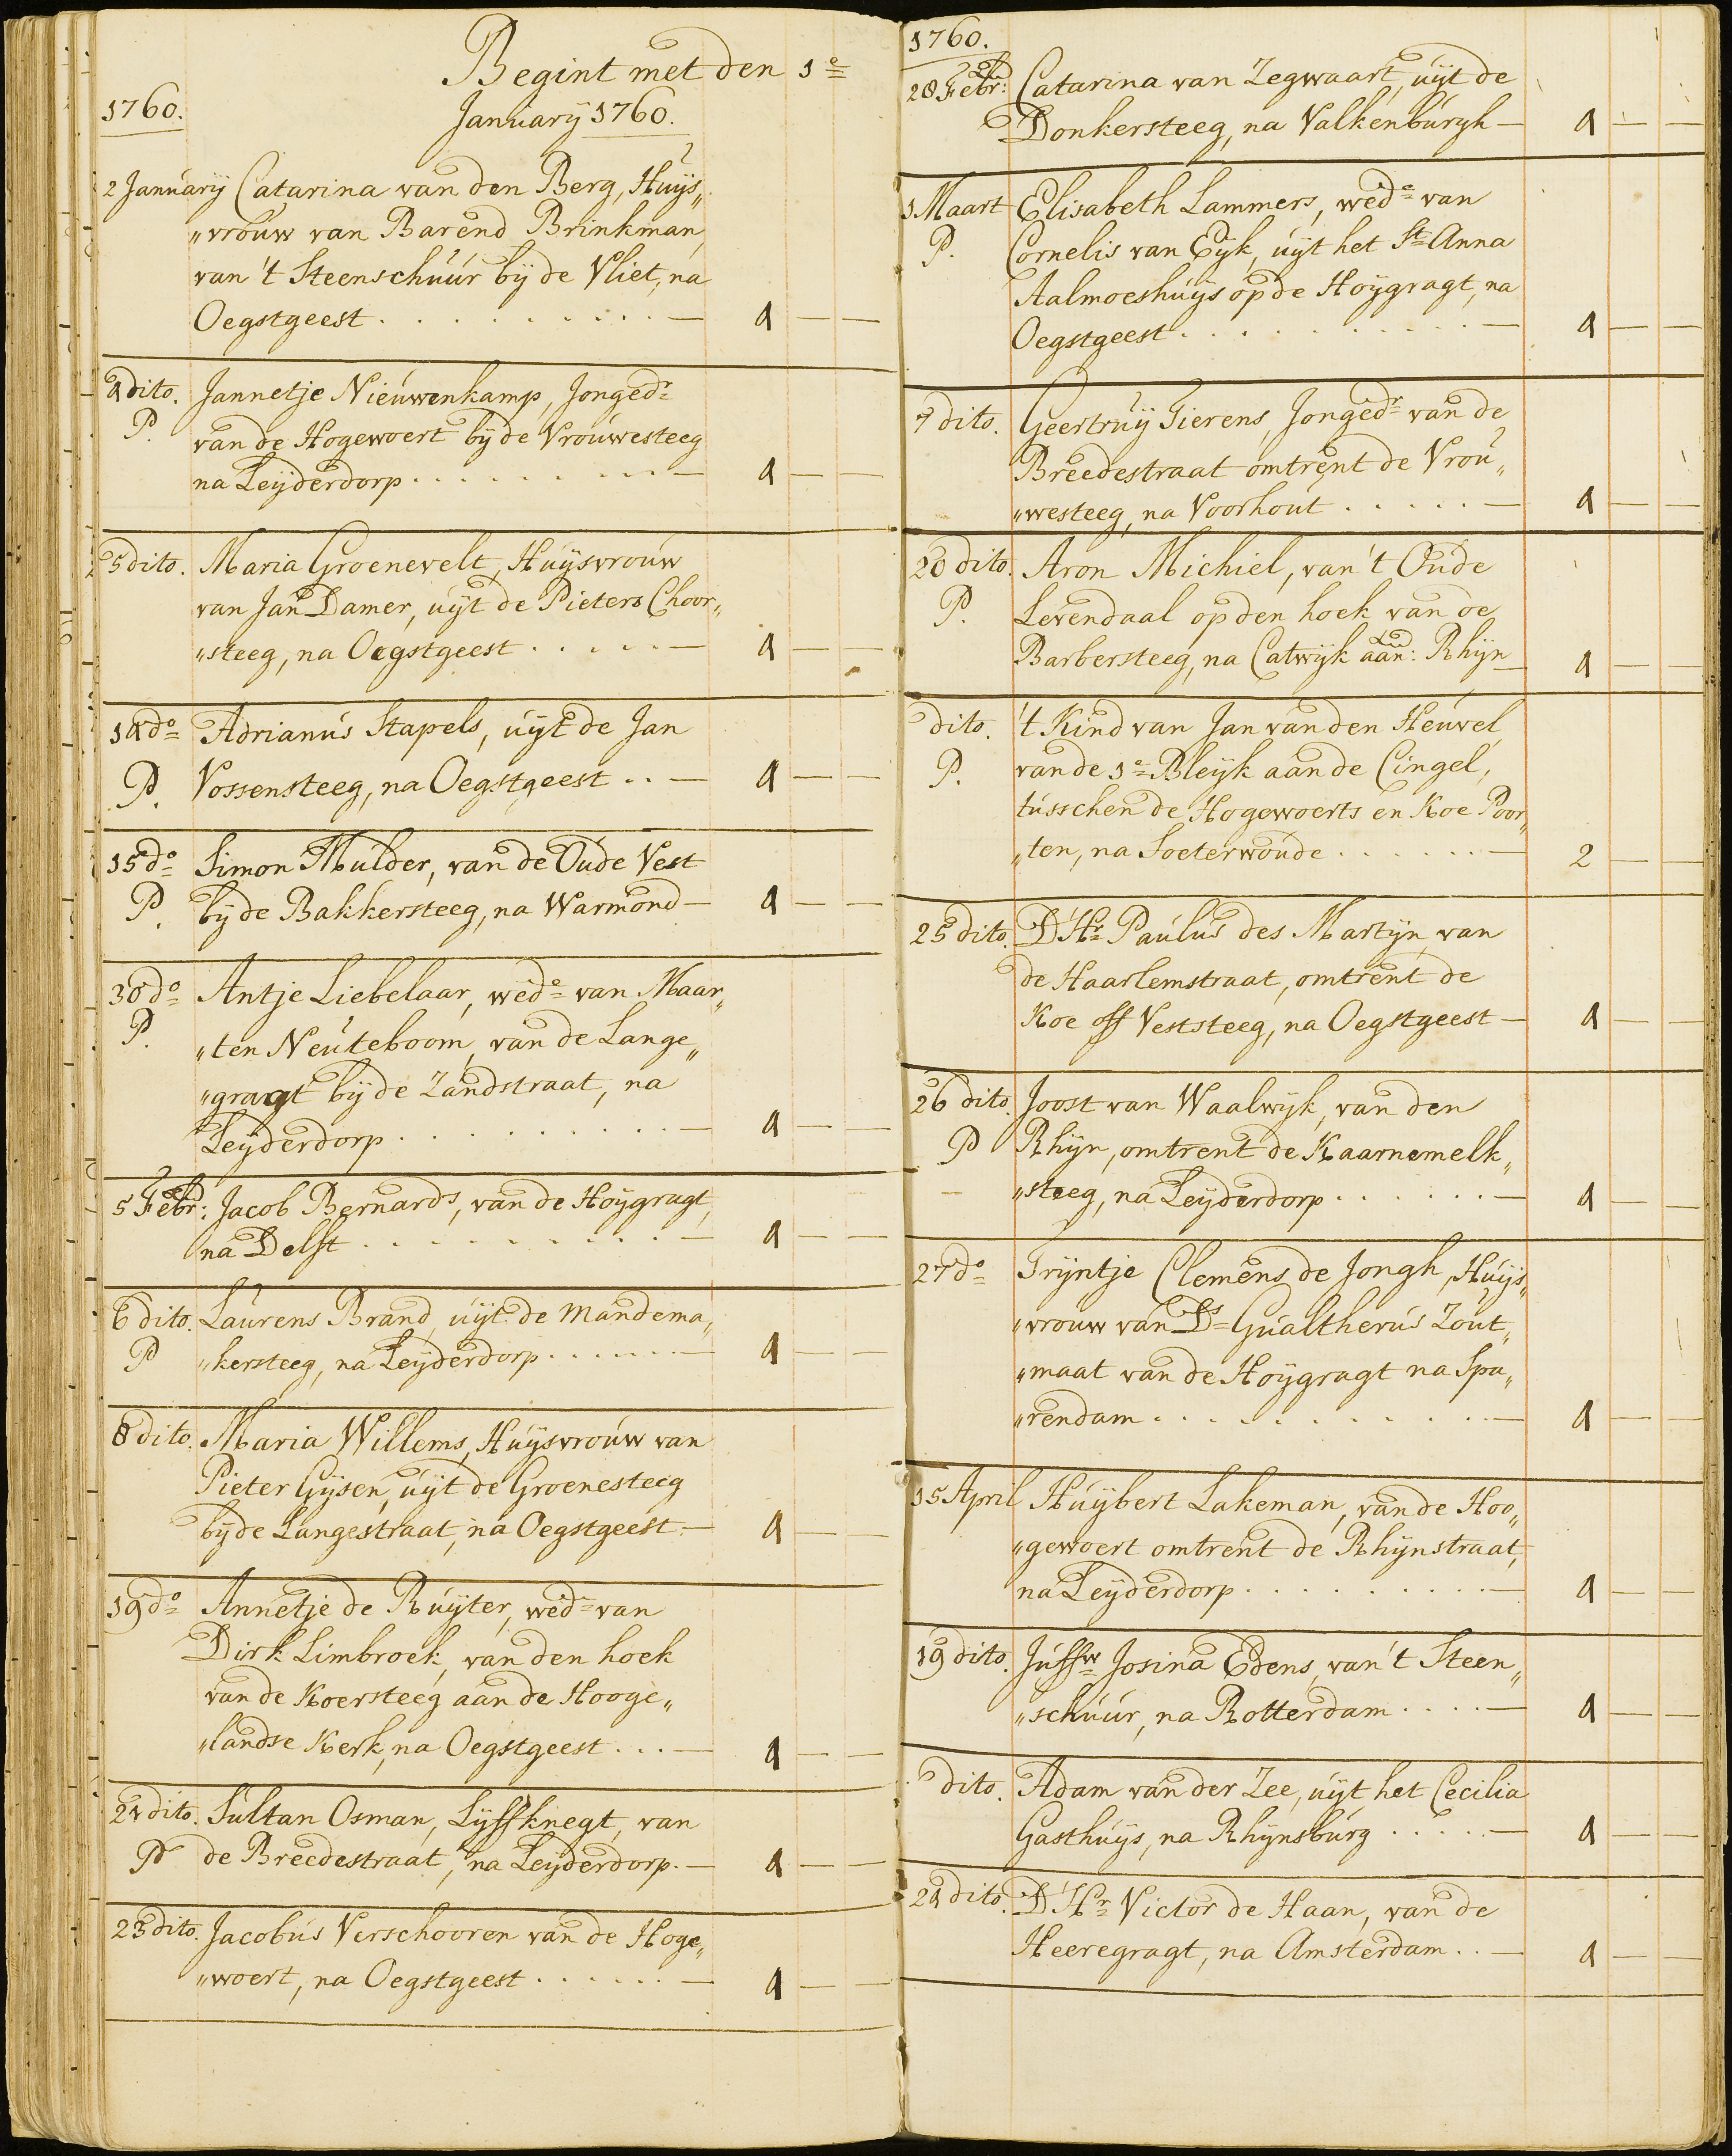 Begint met den 1e
1760. January 1760.
2 January Catarina van den Berg, Huijs„
„vrouw van Barend Brinkman,
van 't Steenschuur bij de Vliet, na
Oegstgeest . . . . . . . . . . — 4 — —
4 dito. Jannetje Nieuwenkamp, Jongedr
P. van de Hogewoert bij de Vrouwesteeg
na Leijderdorp . . . . . . . . . — 4 — —
5 dito. Maria Groenevelt, Huijsvrouw
van Jan Damer, uijt de Pieters Choor„
„steeg, na Oegstgeest . . . . . — 4 — —
14 do Adrianus Stapels, uijt de Jan
P. Vossensteeg, na Oegstgeest . . — 4 — —
15 do Simon Mulder, van de Oude Vest
P. bij de Bakkersteeg, na Warmond — 4 — —
30 do Antje Liebelaar, wede van Maar„
P. „ten Neuteboom, van de Lange„
„gragt bij de Zandstraat, na
Leijderdorp . . . . . . . . . . — 4 — —
5 Febr: Jacob Bernards, van de Hoijgragt,
na Delft . . . . . . . . . . — 4 — —
6 dito. Laurens Brand, uijt de Mandema„
P „kersteeg, na Leijderdorp . . . . . . — 4 — —
8 dito. Maria Willems, Huijsvrouw van
Pieter Gijsen, uijt de Groenesteeg
bij de Langestraat, na Oegstgeest — 4 — —
19 do Annetje de Ruijter, wede van
Dirk Limbroek, van den hoek
van de Koersteeg aan de Hooge„
„landse Kerk, na Oegstgeest . . . — 4 — —
21 dito. Sultan Osman, Lijffknegt, van
P de Breedestraat, na Leijderdorp. — 4 — —
23 dito. Jacobus Verschooren van de Hoge„
„woert, na Oegstgeest . . . . . . — 4 — —
1760.
28 Febr: Catarina van Zegwaart, uijt de
Donkersteeg, na Valkenburgh — 4 — —
1 Maart Elisabeth Lammers, wede van
P. Cornelis van Eijk, uijt het St Anna
Aalmoeshuijs op de Hoijgragt, na
Oegstgeest . . . . . . . . . . — 4 — —
7 dito. Geertruij Tierens, Jongedr van de
Breedestraat omtrent de Vrou„
„westeeg, na Voorhout . . . . . — 4 — —
20 dito. Aron Michiel, van 't Oude
P. Levendaal op den hoek van de
Barbersteeg, na Catwijk aan: Rhijn — 4 — —
dito. 't Kind van Jan van den Heuvel
P. van de 1e Bleijk aan de Cingel,
tusschen de Hogewoerts en Koe Poor„
„ten, na Soeterwoude . . . . . . — 2 — —
25 dito. D'Hr Paulus des Martijn, van
de Haarlemstraat, omtrent de
Koe off Veststeeg, na Oegstgeest — 4 — —
26 dito. Joost van Waalwijk, van den
P Rhijn, omtrent de Kaarnemelk„
„steeg, na Leijderdorp . . . . . . — 4 — —
27 do Trijntje Clemens de Jongh, Huijs„
„vrouw van Ds Gualtherus Zout„
„maat van de Hoijgragt na Spa„
„rendam . . . . . . . . . . . — 4 — —
15 April Huijbert Lakeman, van de Hoo„
„gewoert omtrent de Rhijnstraat,
na Leijderdorp . . . . . . . . . — 4 — —
19 dito. Juffw Josina Edens, van 't Steen„
„schuur, na Rotterdam . . . . — 4 — —
dito. Adam van der Zee, uijt het Cecilia
Gasthuijs, na Rhijnsburg . . . . . — 4 — —
24 dito. D'Hr Victor de Haan, van de
Heeregragt, na Amsterdam . . — 4 — —